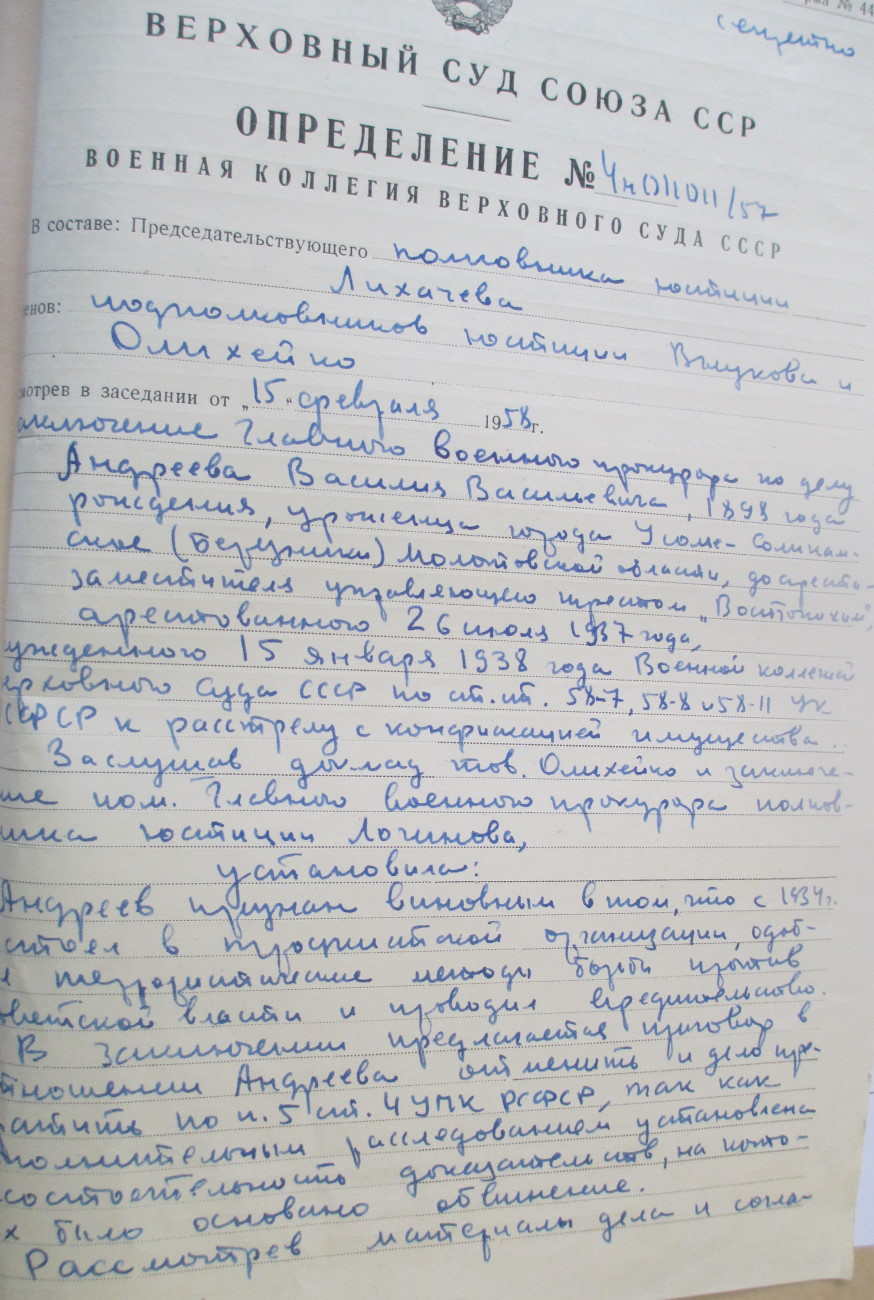 рма № 44
секретно
ВЕРХОВНЫЙ СУД СОЮЗА ССР
ОПРЕДЕЛЕНИЕ № 4н-011011/57
ВОЕННАЯ КОЛЛЕГИЯ ВЕРХОВНОГО СУДА СССР
В составе: Председательствующего полковника юстиции
Лихачева
енов: подполковников юстиции и
Олихейко
мотрев в заседании от „15“ февраля 1958 г.
аключение Главного военного прокурора по делу
Андреева Василия Васильевича, 1898 года
рождения, уроженца города Усолье-Соликам-
ское (Березники) Молотовской области, до ареста-
заместителя управляющего трестом „Востокохим“,
арестованного 26 июля 1937 года,
ужденного 15 января 1938 года Военной коллегией
ерховного Суда СССР по ст.ст. 58-7, 58-8 и 58-11 УК
СФСР к расстрелу с конфискацией имущества.
Заслушав доклад тов. Олихейко и заключе-
ние пом. Главного военного прокурора полков-
ника юстиции Логинова,
установила:
Андреев признан виновным в том, что с 1934 г.
стоял в троцкистской организации, одоб-
л террористические методы борьбы против
оветской власти и проводил вредительство.
В заключении предлагается приговор в
отношении Андреева отменить и дело пре-
атить по п. 5 ст. 4 УПК РСФСР, так как
полнительным расследованием установлена
состоятельность доказательств, на кото-
х было основано обвинение.
Рассмотрев материалы дела и согла-